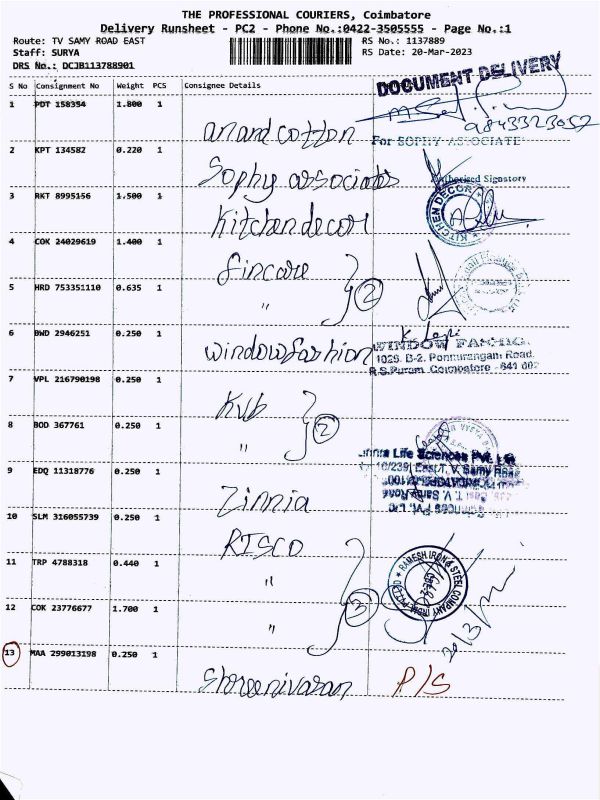 THE PROFESSIONAL COURIERS, Coimbatore
Delivery Runsheet - PC2 - Phone No.:0422-3505555 - Page No.:1
Route: TV SAMY ROAD EAST
RS No.: 1137889
Staff: SURYA
RS Date: 20-Mar-2023
DRS No.: DCJB113788901
DOCUMENT DELIVERY
S No Consignment No Weight PCS Consignee Details
1 PDT 158354 1.800 1
anand cotton
9843323657
For SOPHY ASSOCIATE
2 KPT 134582 0.220 1
Sophy associates
Authorised Signatory
3 RKT 8995156 1.500 1
Kitchen decor
KITCHEN DECOR
4 COK 24029619 1.400 1
fincare
5 HRD 753351110 0.635 1
" 2
6 BWD 2946251 0.250 1
window fashion
WINDOW
1029, B-2, Ponnurangam Road,
R.S.Puram, Coimbatore - 641 002
7 VPL 216790198 0.250 1
KVB
8 BOD 367761 0.250 1
" 2
Life Sciences Pvt. Ltd
9 EDQ 11318776 0.250 1
Zinnia
10 SLM 316055739 0.250 1
RISCO
11 TRP 4788318 0.440 1
"
RAMESH IRON & STEEL COMPANY
12 COK 23776677 1.700 1
" 3
13 MAA 299013198 0.250 1
Shreenivasan P/S